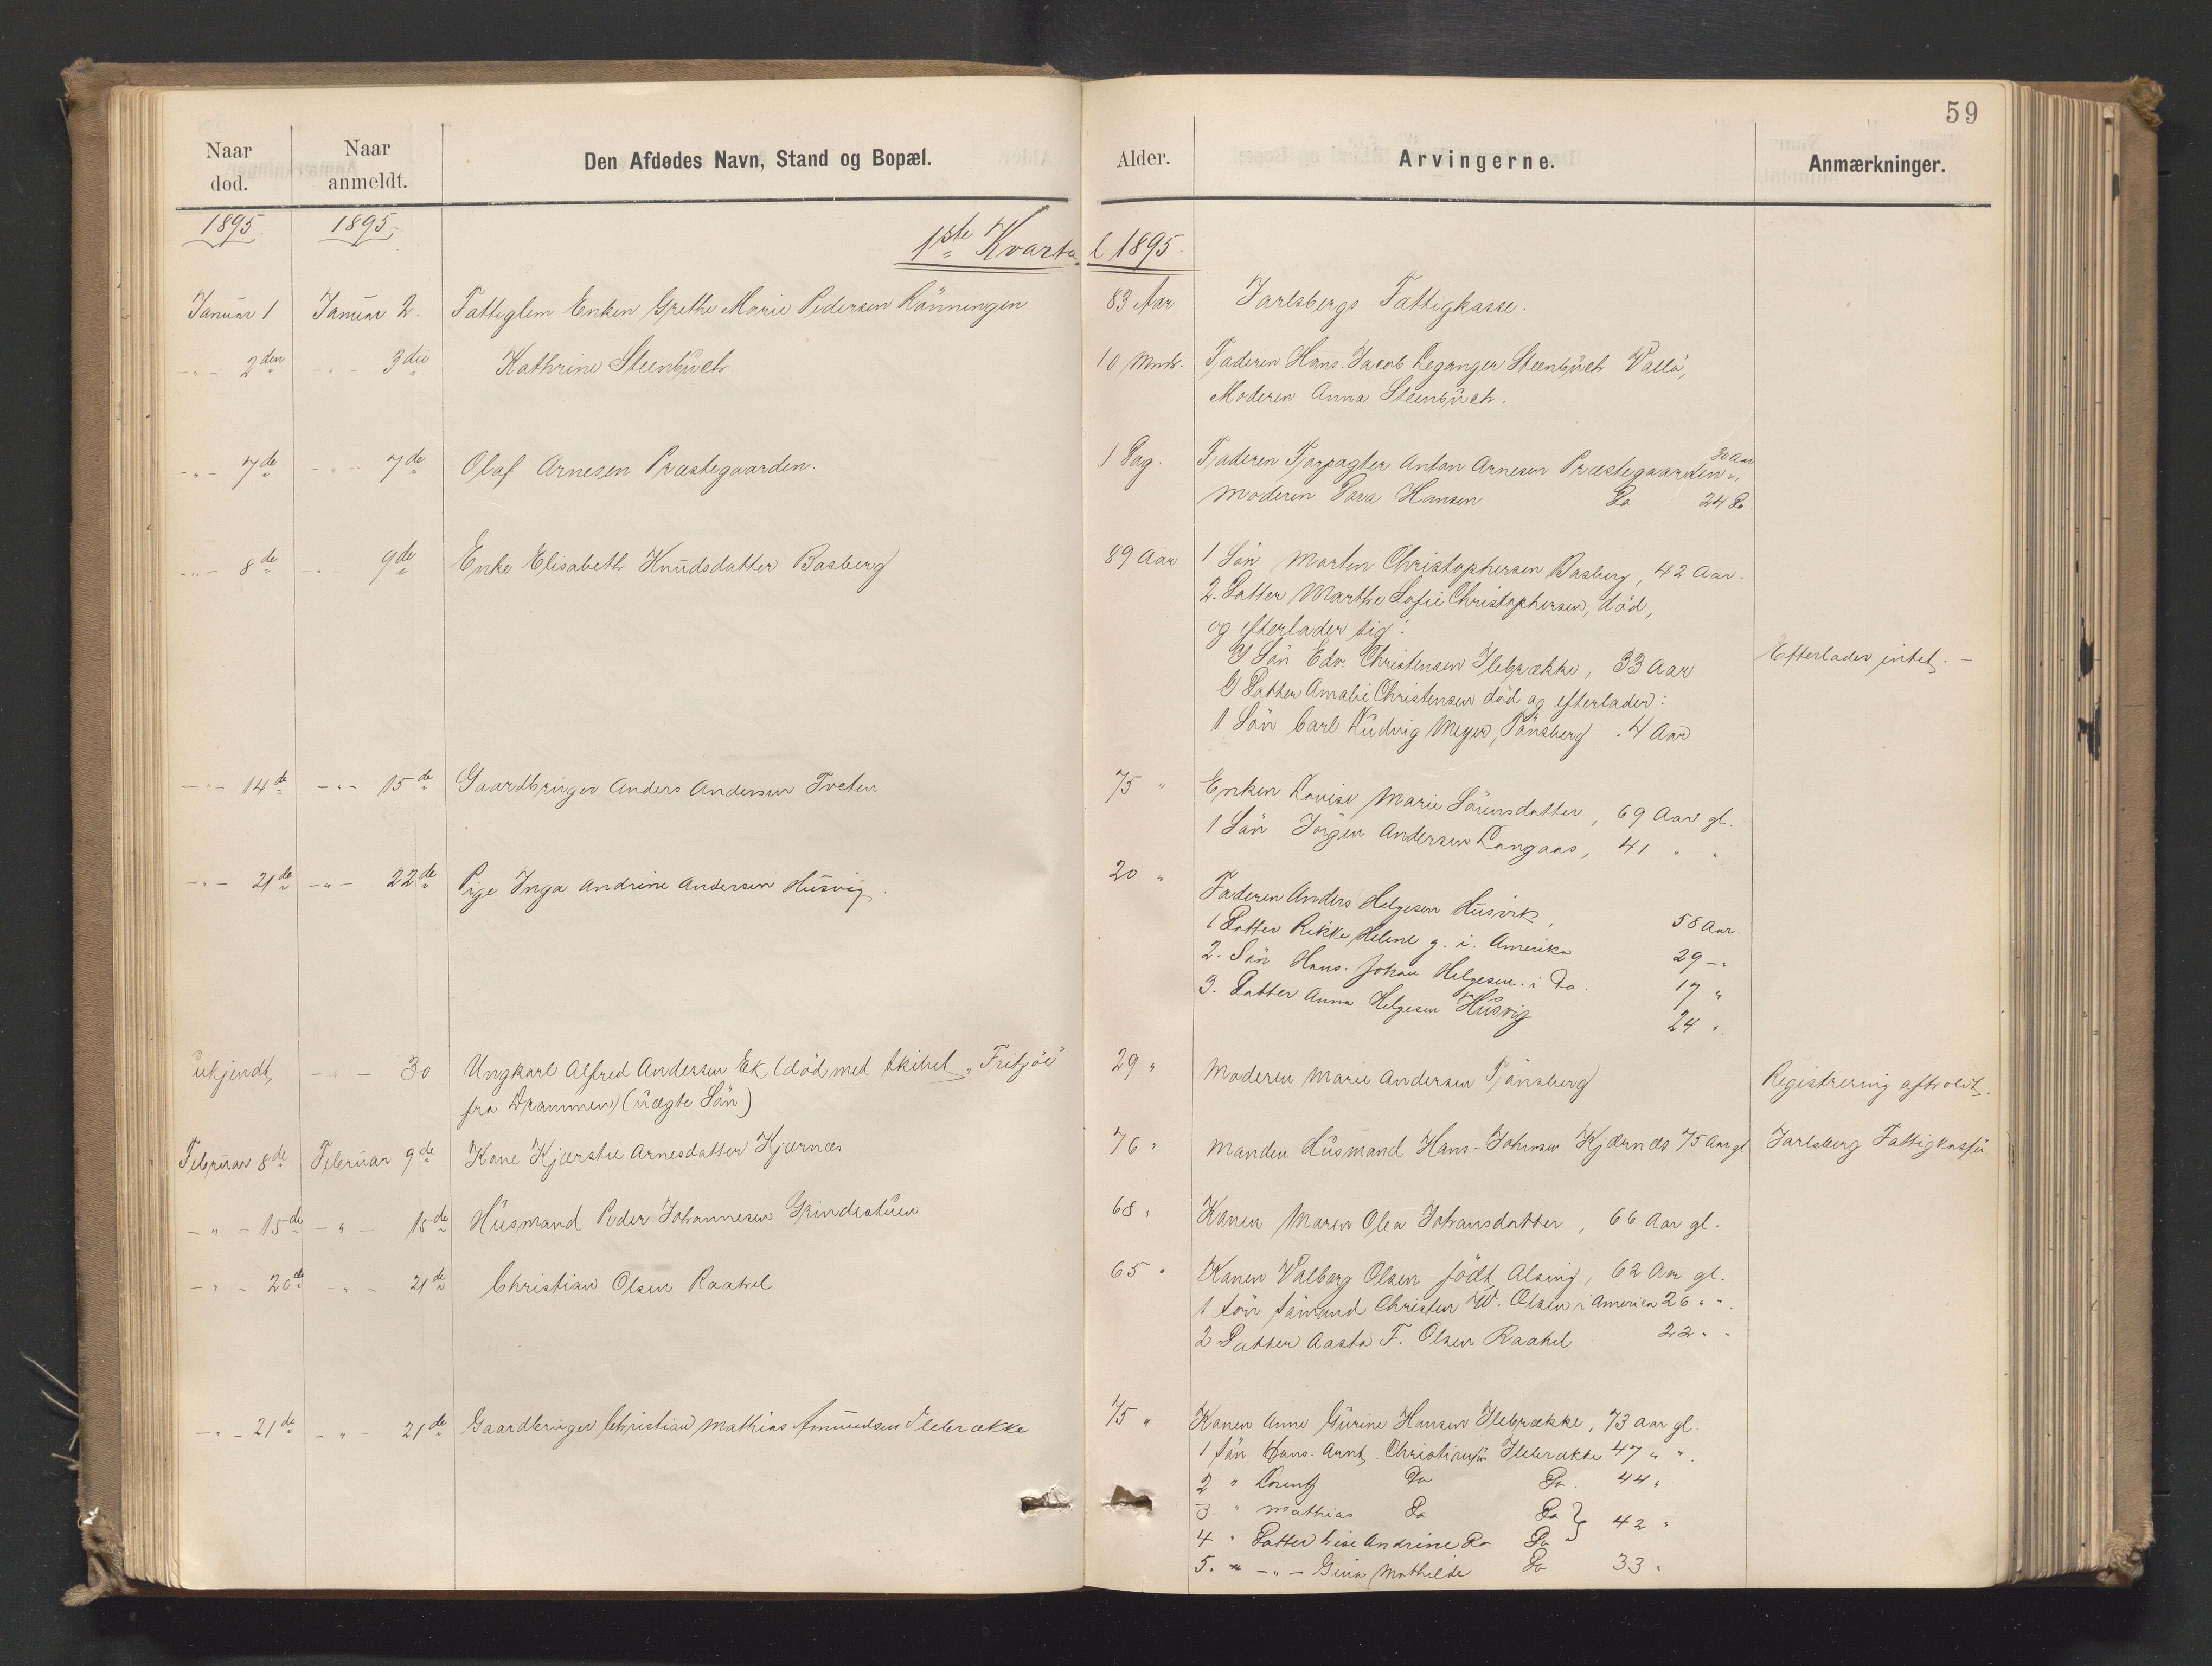 59
Naar død.
Naar anmeldt.
Den Afdødes Navn, Stand og Bopæl.
Alder.
Arvingerne.
Anmærkninger.
1895. 1895.
1ste Kvartal 1895.
Januar 1 Januar 2. Fattiglem Enken Grethe Marie Pedersen Rönningen 83 Aar Jarlsbergs Fattigkasse.
-"- 2den -"- 3die Kathrine Steenbuch 10 Mndr. Faderen Hans Jacob Steenbuch Vallö,
Moderen Anna Steenbuch.
-"- 7de -"- 7de Olaf Arnesen Præstegaarden. 1 Dag. Faderen Forpagter Anton Arnesen Præstegaarden 30 Aar
Moderen Hansen Do 24 Do.
-"- 8de -"- 9de Enke Elisabeth Knudsdatter Basberg 89 Aar 1 Sön Morten Christophersen Basberg, 42 Aar.
2. Datter Marthe Sofie Christophersen, död,
og efterlader sig:
1 Sön Edv. Christensen Ilebrække, 33 Aar Efterlader intet. -
Datter Amalie Christensen död og efterlader:
1 Sön Carl Ludvig Meyer, Tönsberg. 4 Aar
-"- 14de -"- 15de Gaardbruger Anders Andersen Tveten 75 " Enken Lovise Marie Sörensdatter, 69 Aar gl.
1 Sön Jörgen Andersen Langaas, 41 " "
-"- 21de -"- 22de Pige Inga Andrine Andersen Husvig. 20 " Faderen Anders Helgesen Husvik, 58 Aar.
1 Datter Rikke Helene g. i. Amerika 29 -"
2. Sön Hans Johan Helgesen i Do. 17 "
3. Datter Anna Helgesen Husvig 24 "
ukjendt -"- 30 Ungkarl Alfred Andersen Ek (död med skibet "Fritjöf" 29 " Moderen Marie Andersen Tjönsberg Registrering afholdt.
fra Drammen) (uægte Sön)
Februar 8de Februar 9de Kone Kjærstie Arnesdatter Kjærnæs 76 " Manden Husmand Hans Johnsen Kjærnæs 75 Aar gl Jarlsberg Fattigkasse.
-"- 15de -"- 15de Husmand Peder Johannesen Grindestuen 68 " Konen Maren Olea Johansdatter, 66 Aar gl.
-"- 20de -"- 21de Christian Olsen Raahel 65 " Konen Valborg Olsen födt Alsing, 62 Aar gl.
1 sön sömand Christen W. Olsen i America 26 " ".
2 Datter Aasta F. Olsen Raahel 22 " "
-"- 21de -"- 21de Gaardbruger Christian Mathias Amundsen Ilebrække 75 " Konen Anne Gurine Hansen Ilebrække, 73 aar gl.
1 sön Hans Arnt Christiansen Ilebrække 47 " ".
2 " Lorentz Do Do. 44 "
3. " Mathias Do Do } 42 "
4 " Datter Lise Andrine Do Do
5. " -"- Gina Mathilde Do 33 "